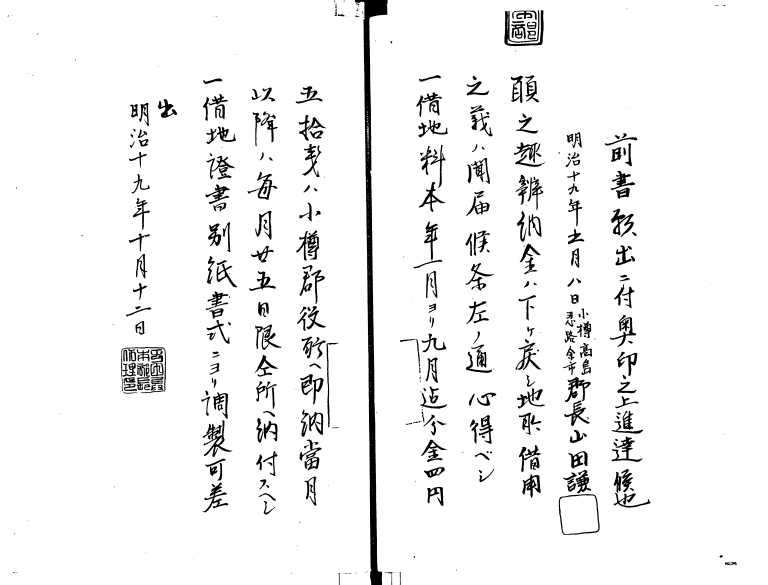 前書願出ニ付奥印之上進達候也
明治十九年五月八日
小樽高島
忍路余市
郡長山田謙
願之趣辨納金ハ下ケ戻シ地所借用
之義ハ聞届候条左ノ通心得ベシ
一借地料本年一月ヨリ九月迄分金四円
五拾銭ハ小樽郡役所ヘ即納當月
以降ハ毎月廿五日限仝所ヘ納付スヘシ
一借地證書別紙書式ニヨリ調製可差
出
明治十九年十月十二日